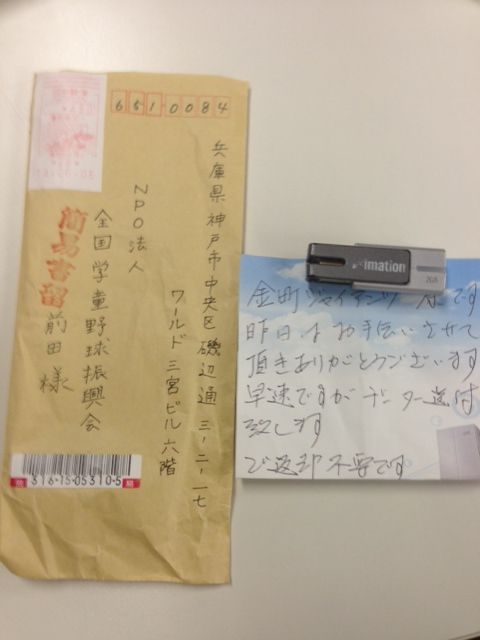 6510084
兵庫県神戸市中央区磯辺通三-二-一七
ワールド三宮ビル六階
NPO法人
全国学童野球振興会
前田様
簡易書留
316-15-05310-5
imation
2GB
金町ジャイアンツ です
昨日はお手伝いさせて
頂きありがとうございます
早速ですがデーター送付
致します
ご返却不要です